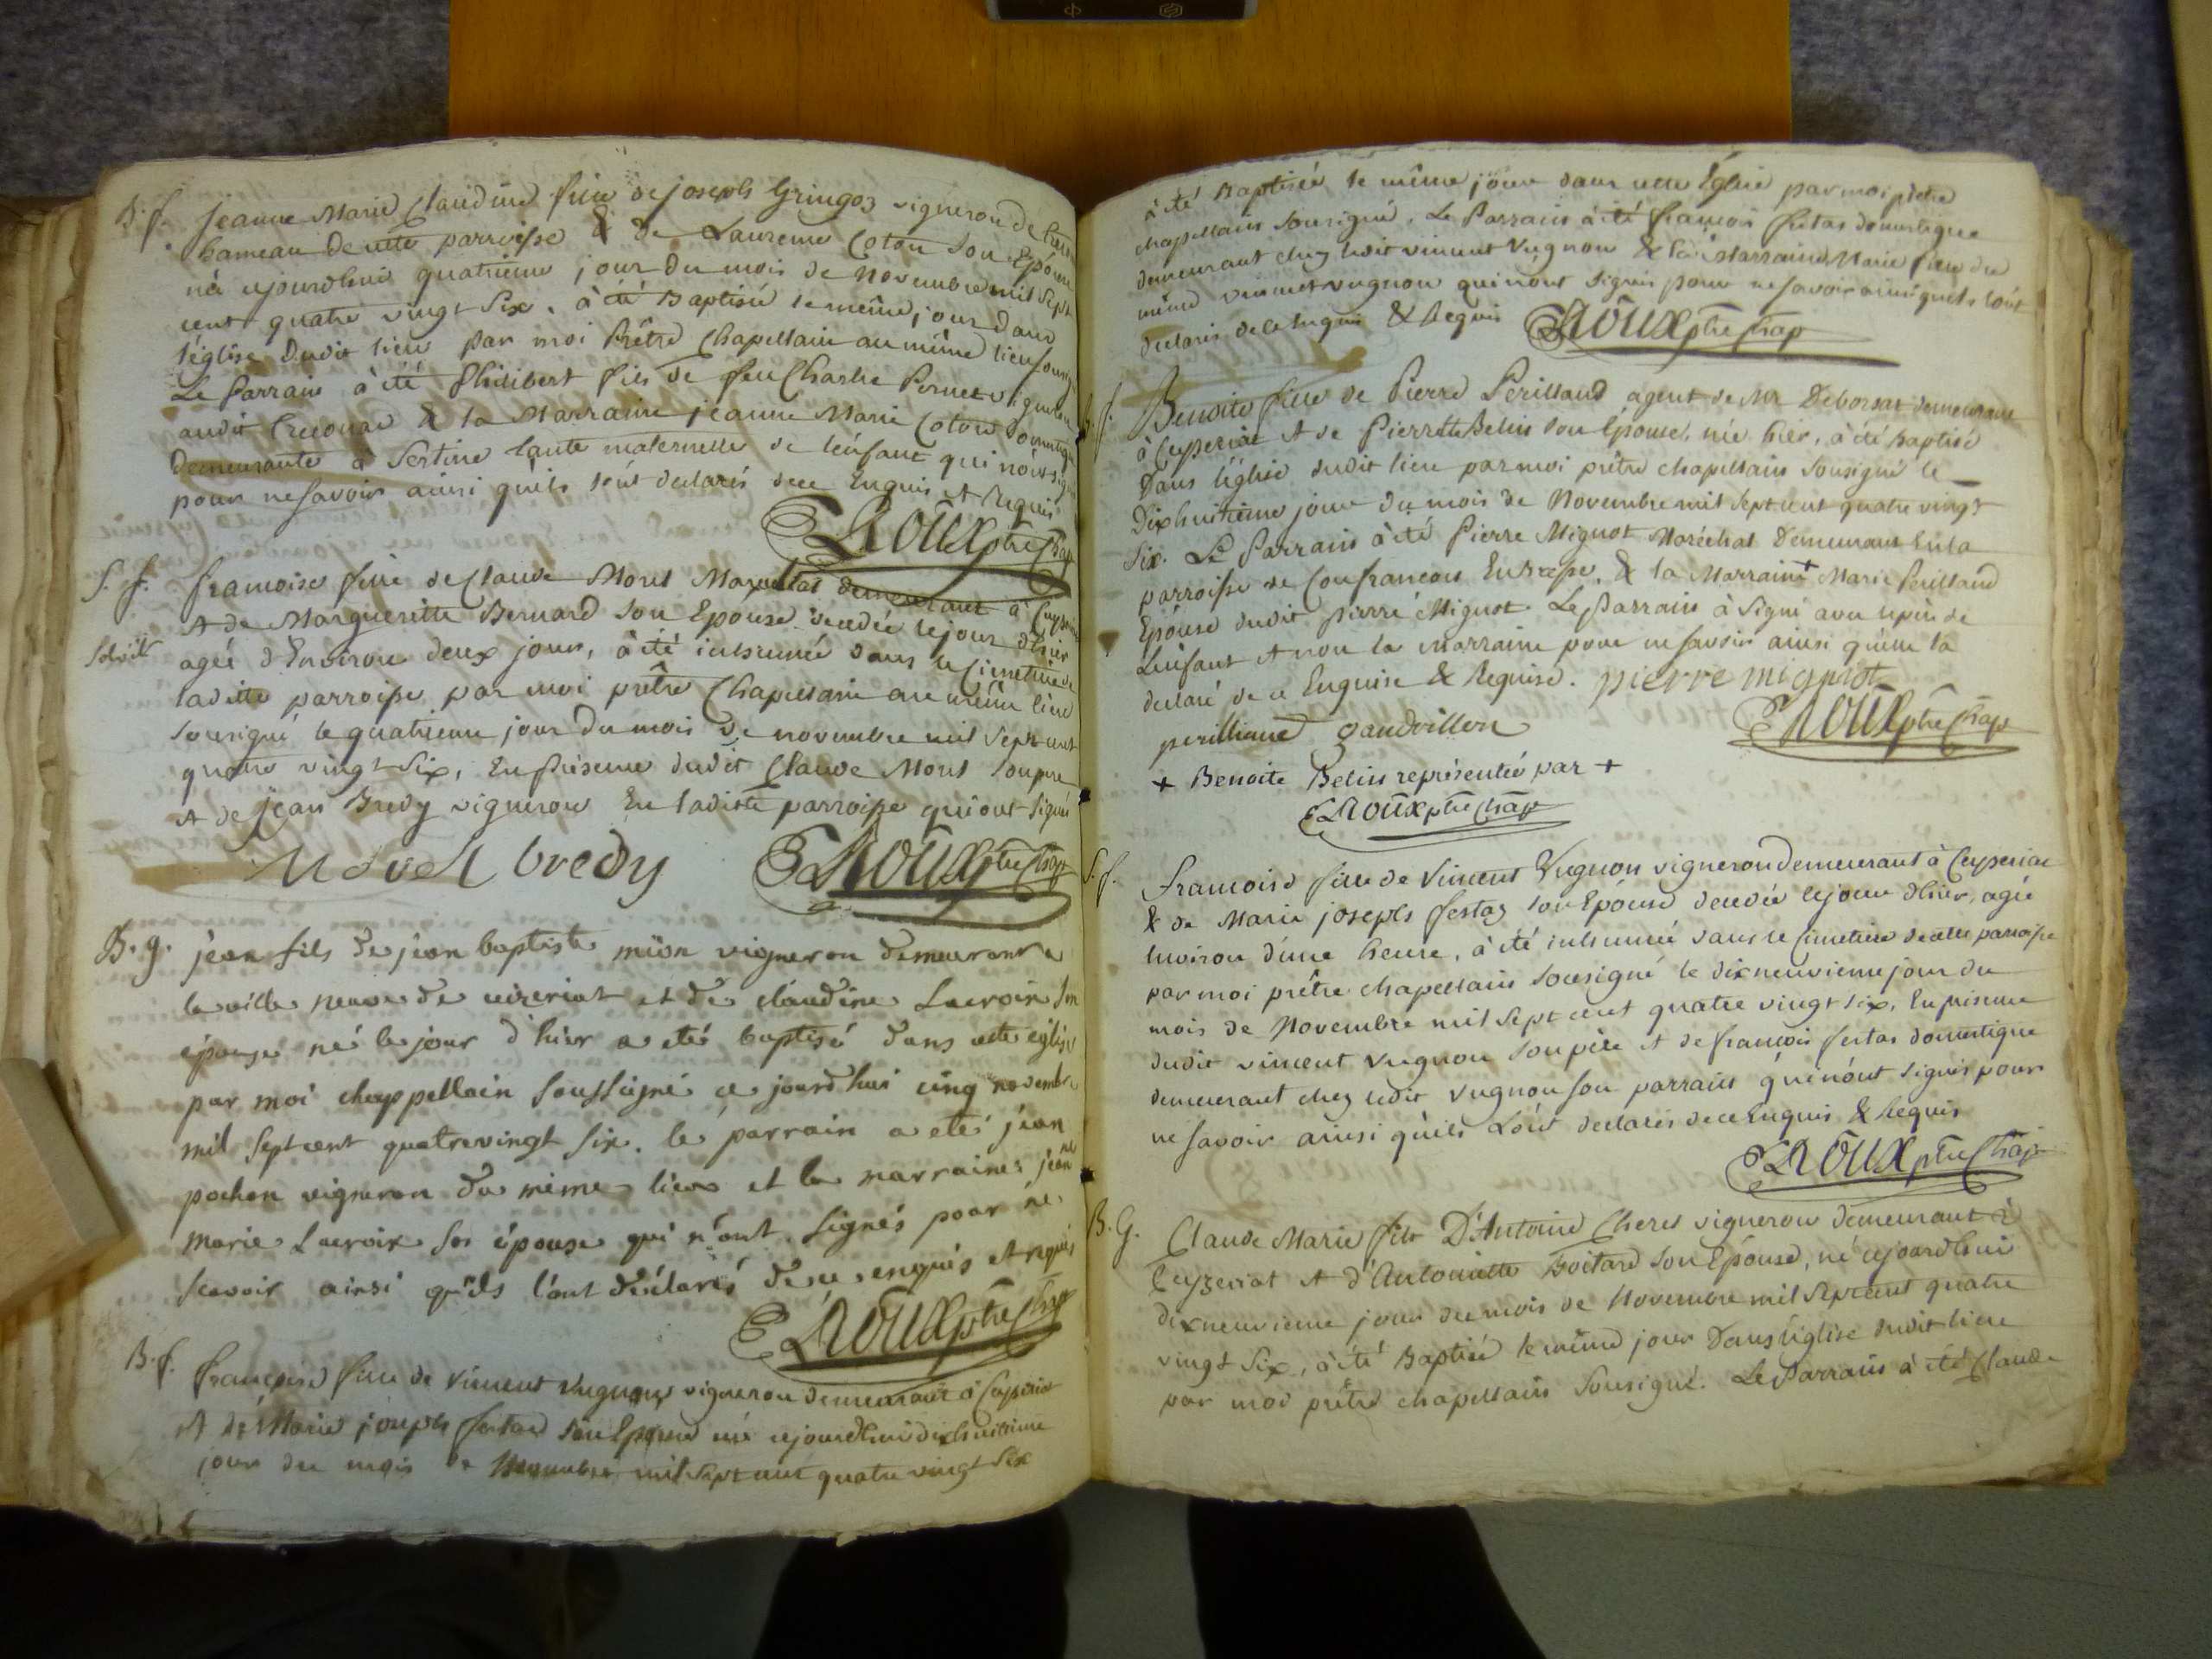 B. f. Jeanne Marie Claudine fille de joseph Gringoz vigneron de
hameau de cette parroisse & de Laurence Coton son Epouse
née cejourdhui quatrieme jour du mois de novembre mil sept
cent quatre vingt six, à été Baptisée le même jour dans
l'église dudit lieu par moi Prêtre Chapellain au même lieu
Le Parrain à été Philibert fils de feu Charle Pernet vigneron
audit & la Marraine jeanne Marie Coton domestique
demeurante à Sertine tante maternelle de l'enfant qui n'ont
pour ne savoir ainsi qu'ils l'ont declarés de ce Enquis et Requis
Roux ptre Chap
S. f. francoise fille de Claude Morel demeurant à
et de Marguerite Bernard son Epouse decedée le jour d'hier
agée d'Environ deux jours, à été inhumée dans le Cimetiere de
ladite parroisse par moi prêtre Chapellain au même lieu
sousigné le quatrieme jour du mois de novembre mil sept cent
quatre vingt six, En présence dudit Claude Morel son pere
et de jean Bredy vigneron En ladite parroisse qui ont signé
Morel bredy Roux ptre Chap
B. g. jean fils de jean baptiste mion vigneron demeurant a
la ville neuve de ceizeriat et de claudine Lacroix son
épouse né le jour d'hier a eté baptisé dans cette eglise
par moi chappellain soussigné ce jourd'hui cinq novembre
mil sept cent quatrevingt six. le parrain a eté jean
pochon vigneron du même lieu et la marraine jeanne
marie Lacroix son épouse qui n'ont signés pour ne
scavoir ainsi qu'ils l'ont déclarés de ce enquis et requis
Roux ptre Chap
B. f. francoise fille de Vincent vugnon vigneron demeurant à Ceyseriat
et de Marie joseph fertas son Epouse née cejourdhui dixhuitieme
jour du mois de Novembre mil sept cent quatre vingt six
à été Baptisée le même jour dans cette Église par moi prêtre
chapellain sousigné. Le Parrain à été françois fertas domestique
demeurant chez ledit vincent Vugnon & la Marraine Marie fille du
même vincent vugnon qui n'ont signés pour ne savoir ainsi qu'ils l'ont
declarés de ce Enquis & Requis Roux ptre Chap
B. f. Benoite fille de Pierre Perilland agent de Mr Deborsat demeurant
à Ceyseriat et de Pierrette Belin son Epouse, née hier, à été baptisé
Dans l'église dudit lieu par moi prêtre chapellain sousigné le
Dixhuitieme jour du mois de Novembre mil sept cent quatre vingt
six. Le Parrain à été Pierre Mignot Maréchal Demeurant En la
parroisse de Confrancon En Bresse, & la Marraine + Marie Perilland
Epouse dudit pierre Mignot. Le Parrain à signé avec le père de
L'enfant et non la marraine pour ne savoir ainsi qu'elle l'a
declaré de ce Enquise & Requise. pierre mignot
perilliand gaudrillon Roux ptre Chap
+ Benoite Belin représentée par +
Roux ptre Chap
S. f. francoise fille de Vincent Vugnon vigneron demeurant à Ceyseriat
& de Marie joseph fertas son Epouse decedée le jour d'hier, agée
Environ d'une heure, à été inhumée dans le cimetiere de cette parroisse
par moi prêtre chapellain sousigné le dixneuvieme jour du
mois de Novembre mil sept cent quatre vingt six, En présence
dudit vincent vugnon son père et de françois fertas domestique
demeurant chez ledit vugnon son parrain qui n'ont signés pour
ne savoir ainsi qu'ils L'ont declarés de ce Enquis & Requis
Roux ptre Chap
B. G. Claude Marie fils D'Antoine Cheres vigneron demeurant à
Ceyzeriat et d'Antoinette Boitard son Epouse, né cejourdhui
dixneuvieme jour du mois de Novembre mil sept cent quatre
vingt six, à été Baptisé le même jour Dans l'église dudit lieu
par moi prêtre chapellain sousigné. Le Parrain à été Claude